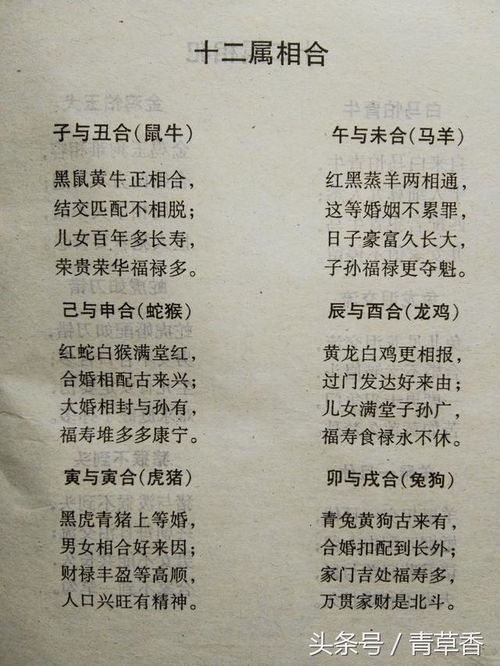 十二属相合
子与丑合(鼠牛)
黑鼠黄牛正相合,
结交匹配不相脱;
儿女百年多长寿,
荣贵荣华福禄多。
己与申合(蛇猴)
红蛇白猴满堂红,
合婚相配古来兴;
大婚相封与孙有,
福寿堆多多康宁。
寅与寅合(虎猪)
黑虎青猪上等婚,
男女相合好来因;
财禄丰盈等高顺,
人口兴旺有精神。
午与未合(马羊)
红黑蒸羊两相通,
这等婚姻不累罪,
日子豪富久长大,
子孙福禄更夺魁。
辰与酉合(龙鸡)
黄龙白鸡更相报,
过门发达好来由;
儿女满堂子孙广,
福寿食禄永不休。
卯与戌合(兔狗)
青兔黄狗古来有,
合婚扣配到长外;
家门吉处福寿多,
万贯家财是北斗。
头条号/青草香